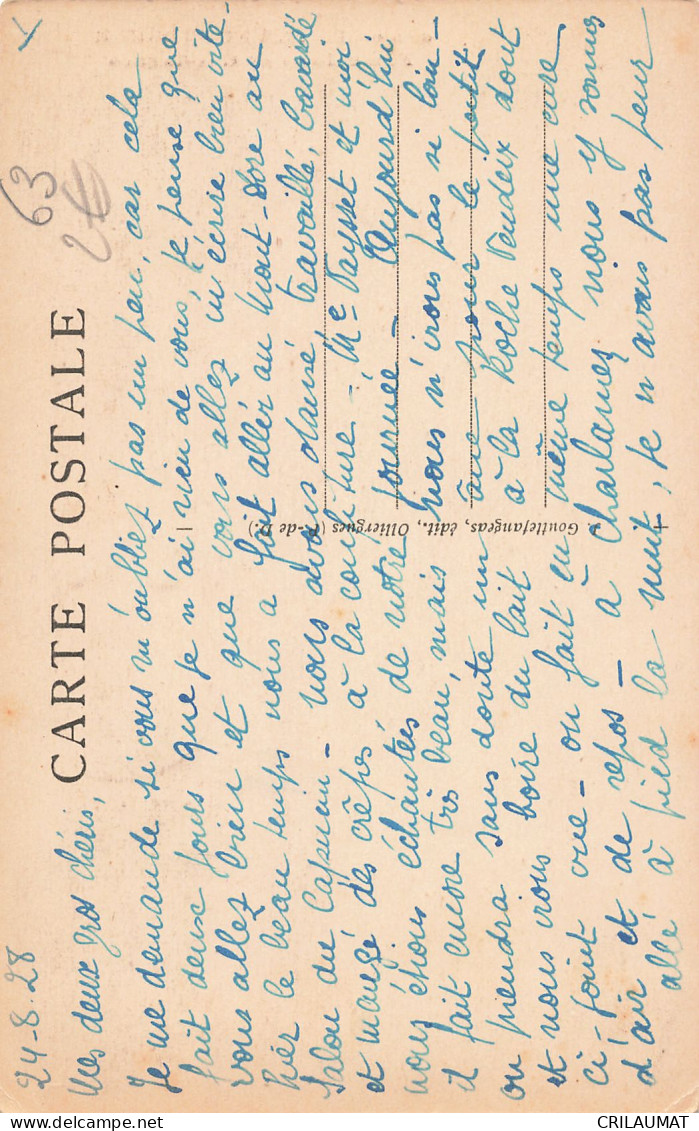 24-8-28
63
2€
CARTE POSTALE
Mes deux gros chéris,
Je me demande si vous m'oubliez pas un peu, car cela
fait deux jours que je n'ai rien de vous, je pense que
vous allez bien et que vous allez m'écrire bien vite -
Hier le beau temps nous a fait aller au Mont-Dore au
Salon du Capucin - nous avons dansé, travaillé, bavardé
et mangé des crêpes à la confiture - Me Paysset et moi
nous étions enchantées de notre journée - Aujourd'hui
il fait encore très beau, mais nous n'irons pas si loin -
on prendra sans doute un âne pour le petit
et nous irons boire du lait à la Roche Vendeix dont
ci-joint vue - on fait en même temps une cure
d'air et de repos - à Charlannes nous y sommes
allé à pied la nuit, je n'avais pas peur
J. Gouttefangeas, édit., Olliergues (P.-de-D.)
CRILAUMAT